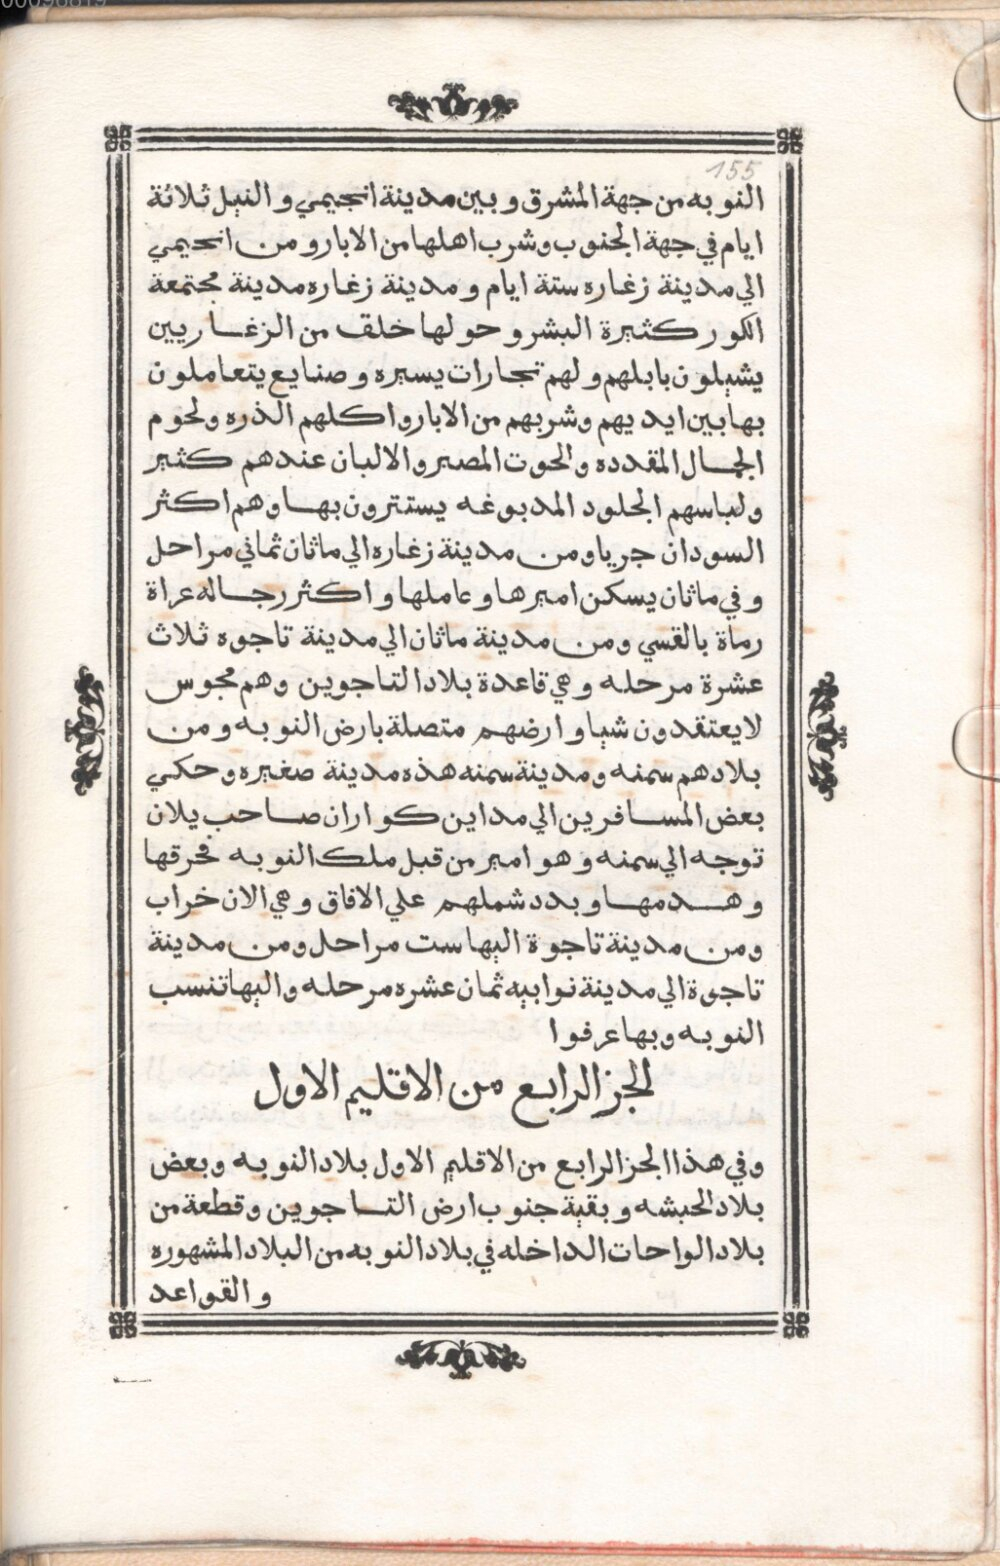 00096819
155
النوبه من جهة المشرق وبين مدينة انجيمي والنيل ثلاثة
ايام في جهة الجنوب وشرب اهلها من الابار ومن انجيمي
الي مدينة زغاره ستة ايام ومدينة زغاره مدينة مجتمعة
الكور كثيرة البشر وحولها خلق من الزغاريين
يشيلون بابلهم ولهم تجارات يسيره وصنايع يتعاملون
بها بين ايديهم وشربهم من الابار واكلهم الذره ولحوم
الجمال المقدده والحوت المصير والالبان عندهم كثير
ولباسهم الجلود المدبوغه يستترون بها وهم اكثر
السودان جربا ومن مدينة زغاره الي ماثان ثماني مراحل
وفي ماثان يسكن اميرها وعاملها واكثر رجاله عراة
رماة بالقسي ومن مدينة ماثان الي مدينة تاجوه ثلاث
عشرة مرحله وهي قاعدة بلاد التاجوين وهم مجوس
لا يعتقدون شيا وارضهم متصلة بارض النوبه ومن
بلادهم سمنه ومدينة سمنه هذه مدينة صغيره وحكي
بعض المسافرين الي مداين كوار ان صاحب يلان
توجه الي سمنه وهو امير من قبل ملك النوبه فحرقها
وهدمها وبدد شملهم علي الافاق وهي الان خراب
ومن مدينة تاجوة اليها ست مراحل ومن مدينة
تاجوة الي مدينة نوابيه ثمان عشره مرحله واليها تنسب
النوبه وبها عرفوا
الجز الرابع من الاقليم الاول
وفي هذا الجز الرابع من الاقليم الاول بلاد النوبه وبعض
بلاد الحبشه وبقية جنوب ارض التاجوين وقطعة من
بلاد الواحات الداخله في بلاد النوبه من البلاد المشهوره
والقواعد